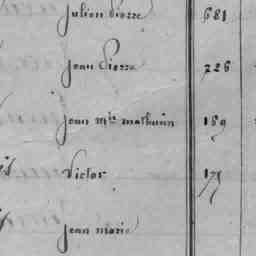 julien Pierre 681
jean Pierre 226
jean m.ie mathurin 189
Victor 175
jean marie